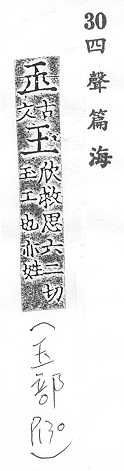 30 四聲篇海
古文
玊
欣救思六二切
玉工也亦姓
(玉部 P130)